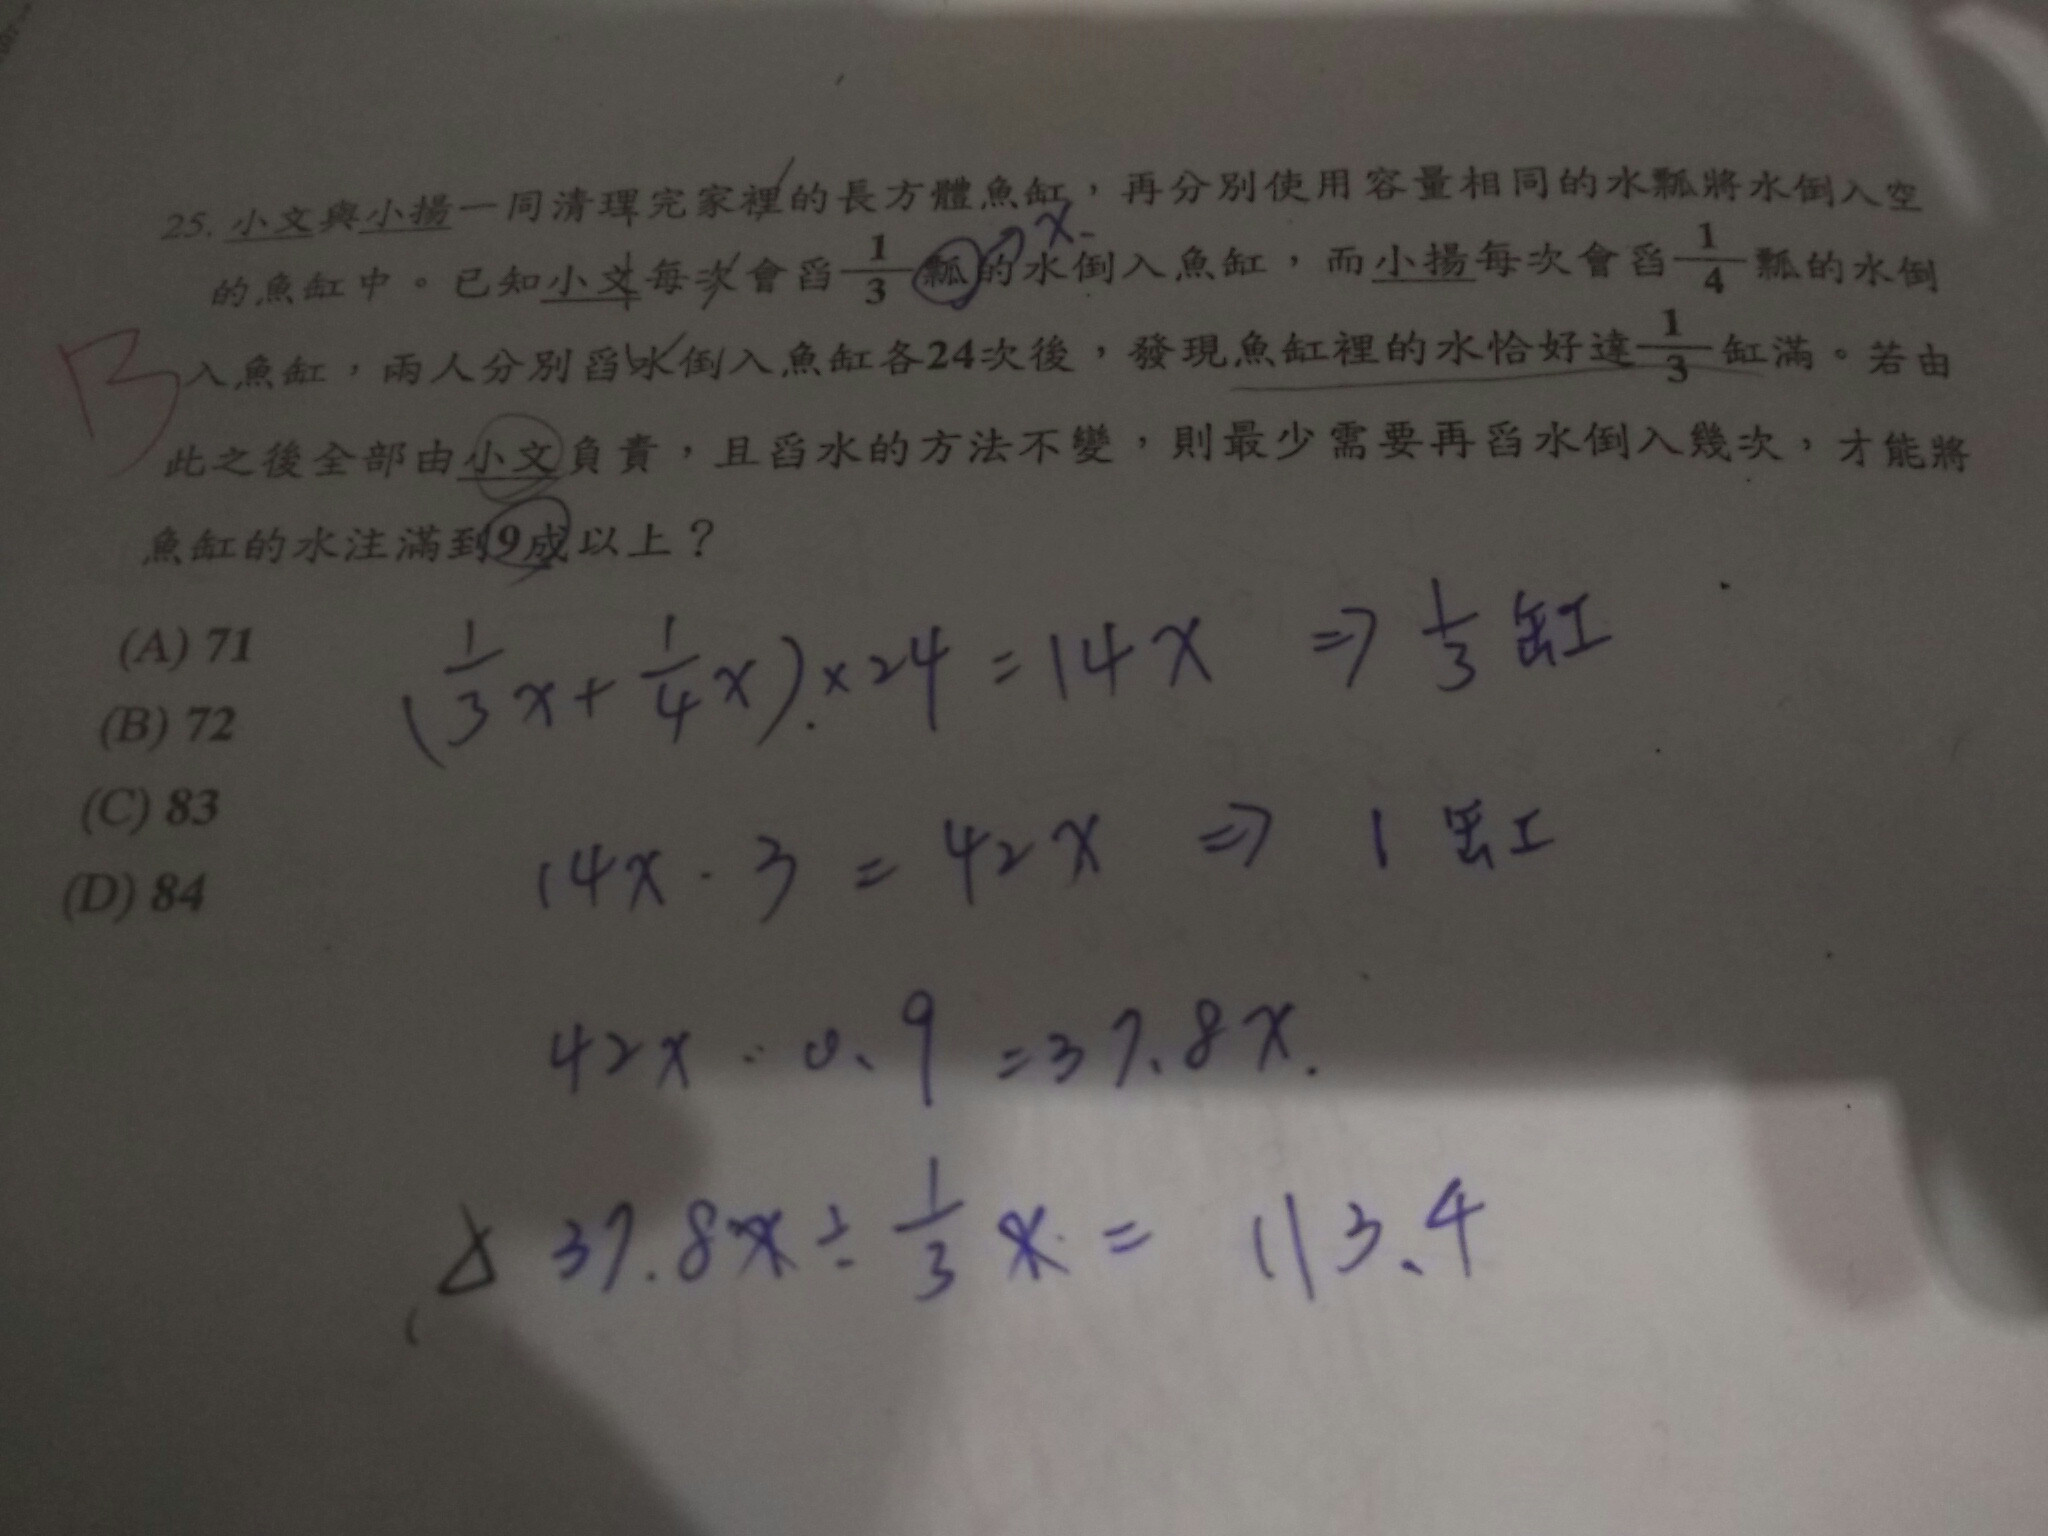 25. 小文與小揚一同清理完家裡的長方體魚缸，再分別使用容量相同的水瓢將水倒入空
x
的魚缸中。已知小文每次會舀1/3瓢的水倒入魚缸，而小揚每次會舀1/4瓢的水倒
入魚缸，兩人分別舀水倒入魚缸各24次後，發現魚缸裡的水恰好達1/3缸滿。若由
B
此之後全部由小文負責，且舀水的方法不變，則最少需要再舀水倒入幾次，才能將
魚缸的水注滿到9成以上？
(A) 71
(B) 72
(C) 83
(D) 84
(1/3x+1/4x)×24=14x ⇒ 1/3缸
14x·3=42x ⇒ 1缸
42x·0.9=37.8x.
37.8x÷1/3x=113.4